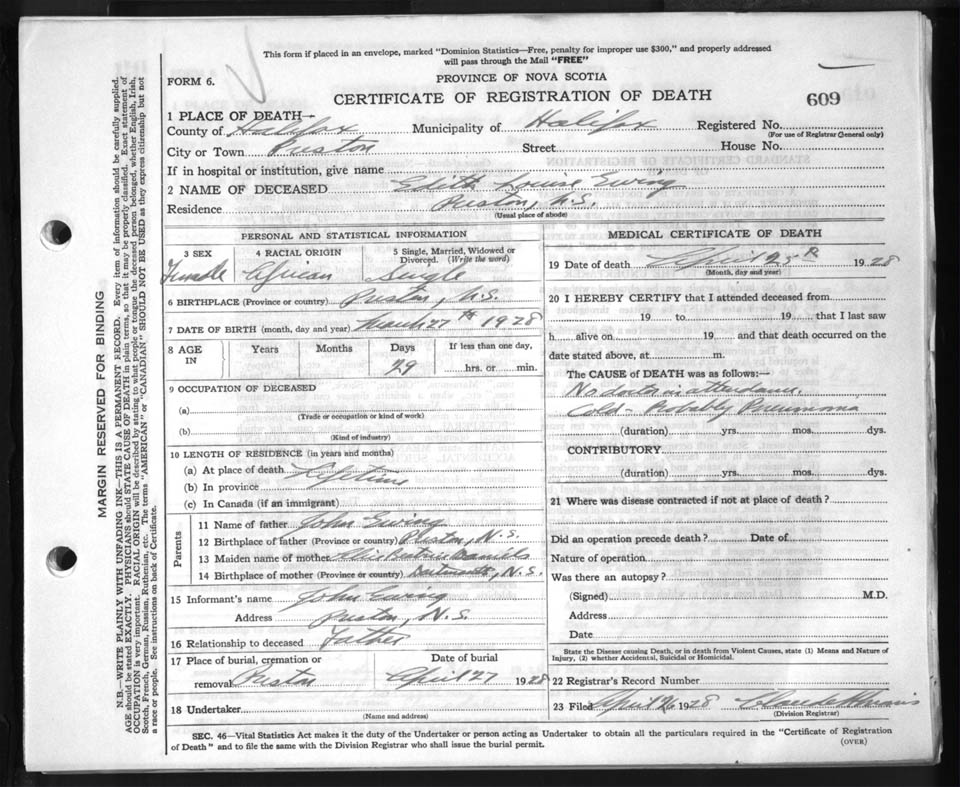 This form if placed in an envelope, marked "Dominion Statistics—Free, penalty for improper use $300," and properly addressed
will pass through the Mail "FREE"
FORM 6.
PROVINCE OF NOVA SCOTIA
CERTIFICATE OF REGISTRATION OF DEATH
609
1 PLACE OF DEATH—
County of Halifax Municipality of Halifax Registered No.
(For use of Registrar General only)
City or Town Preston Street House No.
If in hospital or institution, give name
2 NAME OF DECEASED Edith Louise Ewing
Residence Preston, N.S.
(Usual place of abode)
PERSONAL AND STATISTICAL INFORMATION
3 SEX 4 RACIAL ORIGIN 5 Single, Married, Widowed or
Divorced. (Write the word)
Female African Single
6 BIRTHPLACE (Province or country) Preston, N.S.
7 DATE OF BIRTH (month, day and year) March 27th 1928
8 AGE IN Years Months Days If less than one day,
29 hrs. or min.
9 OCCUPATION OF DECEASED
(a)
(Trade or occupation or kind of work)
(b)
(Kind of industry)
10 LENGTH OF RESIDENCE (in years and months)
(a) At place of death Lifetime
(b) In province
(c) In Canada (if an immigrant)
Parents
11 Name of father John Ewing
12 Birthplace of father (Province or country) Preston, N.S.
13 Maiden name of mother Beatrice Daniels
14 Birthplace of mother (Province or country) Dartmouth, N.S.
15 Informant's name John Ewing
Address Preston, N.S.
16 Relationship to deceased Father
17 Place of burial, cremation or Date of burial
removal Preston April 27 1928
18 Undertaker
(Name and address)
MEDICAL CERTIFICATE OF DEATH
19 Date of death April 25th 1928
(Month, day and year)
20 I HEREBY CERTIFY that I attended deceased from
19 to 19 that I last saw
h alive on 19 and that death occurred on the
date stated above, at m.
The CAUSE of DEATH was as follows:—
No doctor in attendance.
Cold - Probably Pneumonia
(duration) yrs. mos. dys.
CONTRIBUTORY
(duration) yrs. mos. dys.
21 Where was disease contracted if not at place of death?
Did an operation precede death? Date of
Nature of operation
Was there an autopsy?
(Signed) M.D.
Address
Date
State the Disease causing Death, or in death from Violent Causes, state (1) Means and Nature of
Injury, (2) whether Accidental, Suicidal or Homicidal.
22 Registrar's Record Number
23 Filed April 26 1928
(Division Registrar)
SEC. 46—Vital Statistics Act makes it the duty of the Undertaker or person acting as Undertaker to obtain all the particulars required in the "Certificate of Registration
of Death" and to file the same with the Division Registrar who shall issue the burial permit.
(OVER)
MARGIN RESERVED FOR BINDING
N.B.—WRITE PLAINLY WITH UNFADING INK—THIS IS A PERMANENT RECORD. Every item of information should be carefully supplied.
AGE should be stated EXACTLY. PHYSICIANS should STATE CAUSE OF DEATH in plain terms, so that it may be properly classified. Exact statement of
OCCUPATION is very important. RACIAL ORIGIN will be described by stating to what people or tongue the deceased person belonged, whether English, Irish,
Scotch, French, German, Russian, Ruthenian, etc. The terms "AMERICAN" or "CANADIAN" SHOULD NOT BE USED as they express citizenship but not
a race or people. See instructions on back of Certificate.